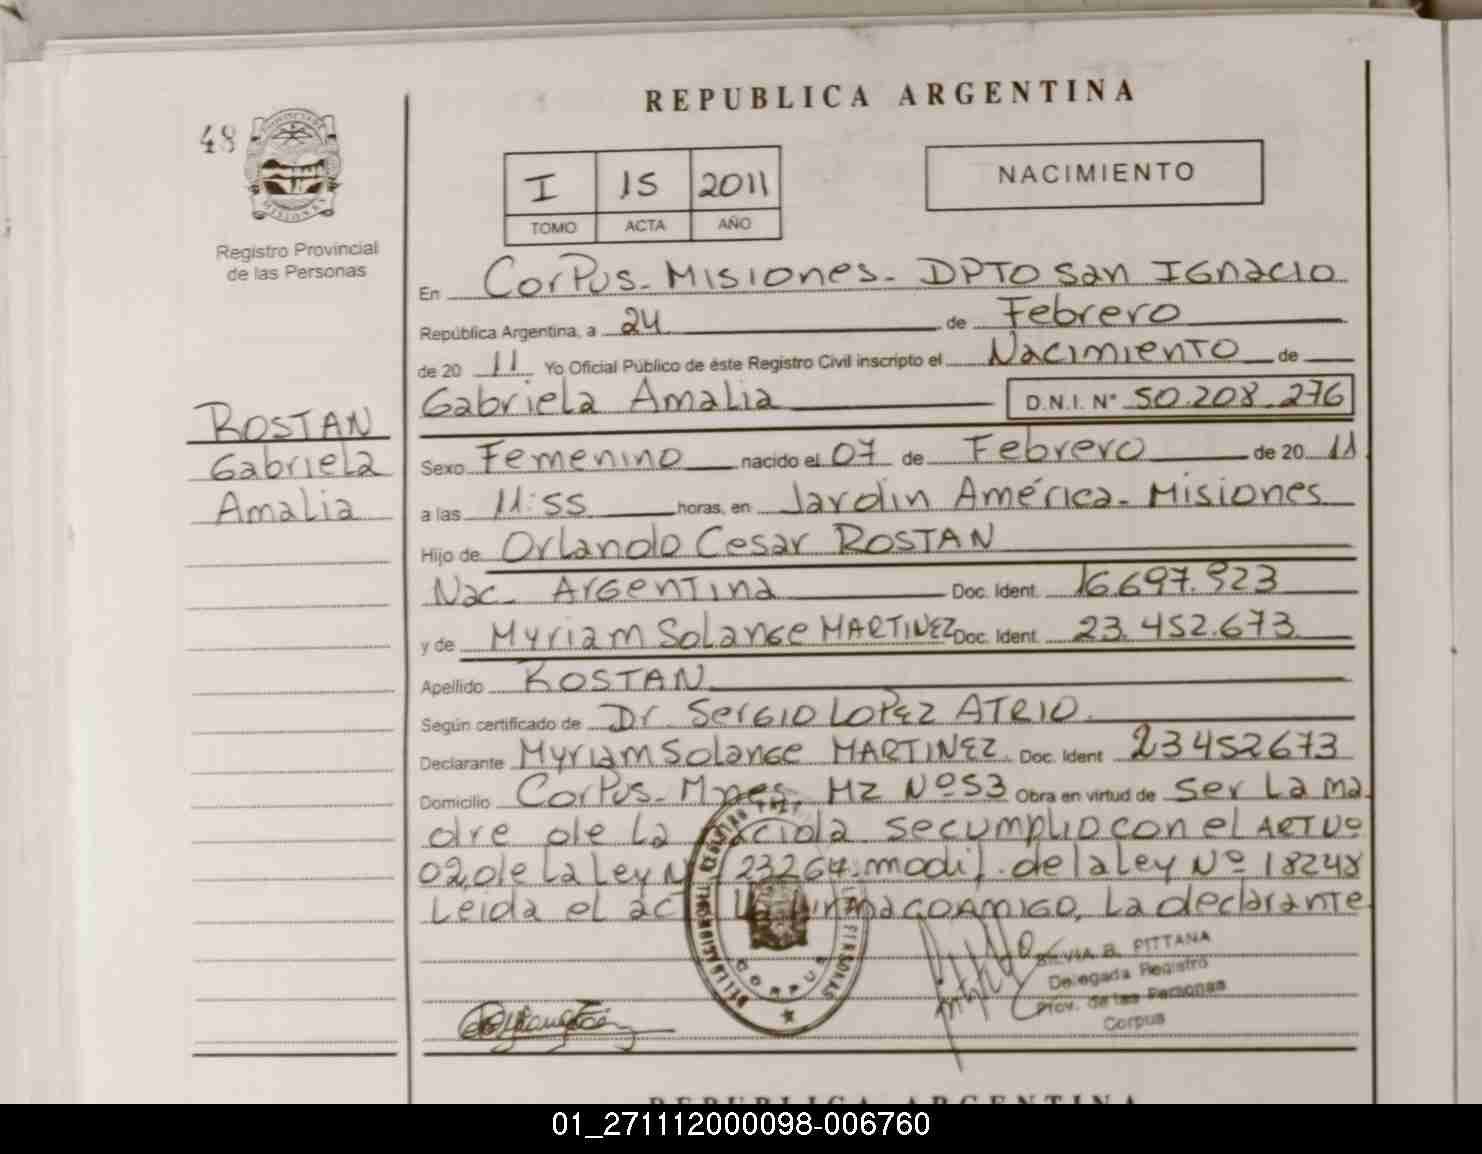 REPUBLICA ARGENTINA
48
PROVINCIA DE
MISIONES
Registro Provincial
de las Personas
I 15 2011
TOMO ACTA AÑO
NACIMIENTO
En Corpus - Misiones - DPTO San Ignacio
República Argentina, a 24 de Febrero
de 20 11 Yo Oficial Público de éste Registro Civil inscripto el Nacimiento de
Gabriela Amalia D.N.I. N° 50.208.276
ROSTAN
Gabriela
Amalia
Sexo Femenino nacido el 07 de Febrero de 20 11
a las 11:55 horas, en Jardin América - Misiones
Hijo de Orlando Cesar ROSTAN
Nac. Argentina Doc. Ident. 16.697.923
y de Myriam Solange MARTINEZ Doc. Ident. 23.452.673
Apellido ROSTAN
Según certificado de Dr. Sergio LOPEZ ATRIO
Declarante Myriam Solange MARTINEZ Doc. Ident 23452673
Domicilio Corpus - Mnes, MZ Nº 53 Obra en virtud de ser La ma
dre de La nacida se cumplio con el ART Nº
02 de La Ley Nº 23264 modif. de la Ley Nº 18248
Leida el act La firma conmigo, La declarante
CORPUS
SILVIA B. PITTANA
Delegada Registro
Prov. de las Personas
Corpus
REPUBLICA ARGENTINA
01_271112000098-006760